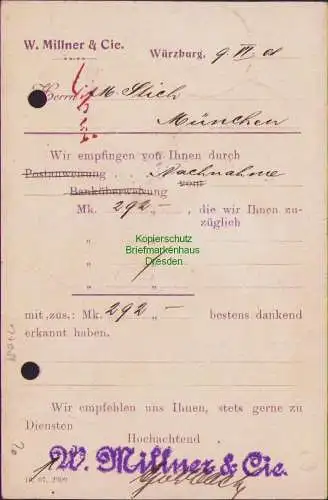 W. Millner & Cie.
Würzburg, 9. VI. 08
Herrn M. Stich
München
Wir empfingen von Ihnen durch
Postanweisung . . . Nachnahme
Banküberweisung vom
Mk. 292 „ – , die wir Ihnen zu-
züglich
„ „
Kopierschutz
Briefmarkenhaus
Dresden
„ „
mit zus.: Mk. 292 „ – bestens dankend
erkannt haben.
Wir empfehlen uns Ihnen, stets gerne zu
Diensten
Hochachtend
W. Millner & Cie.